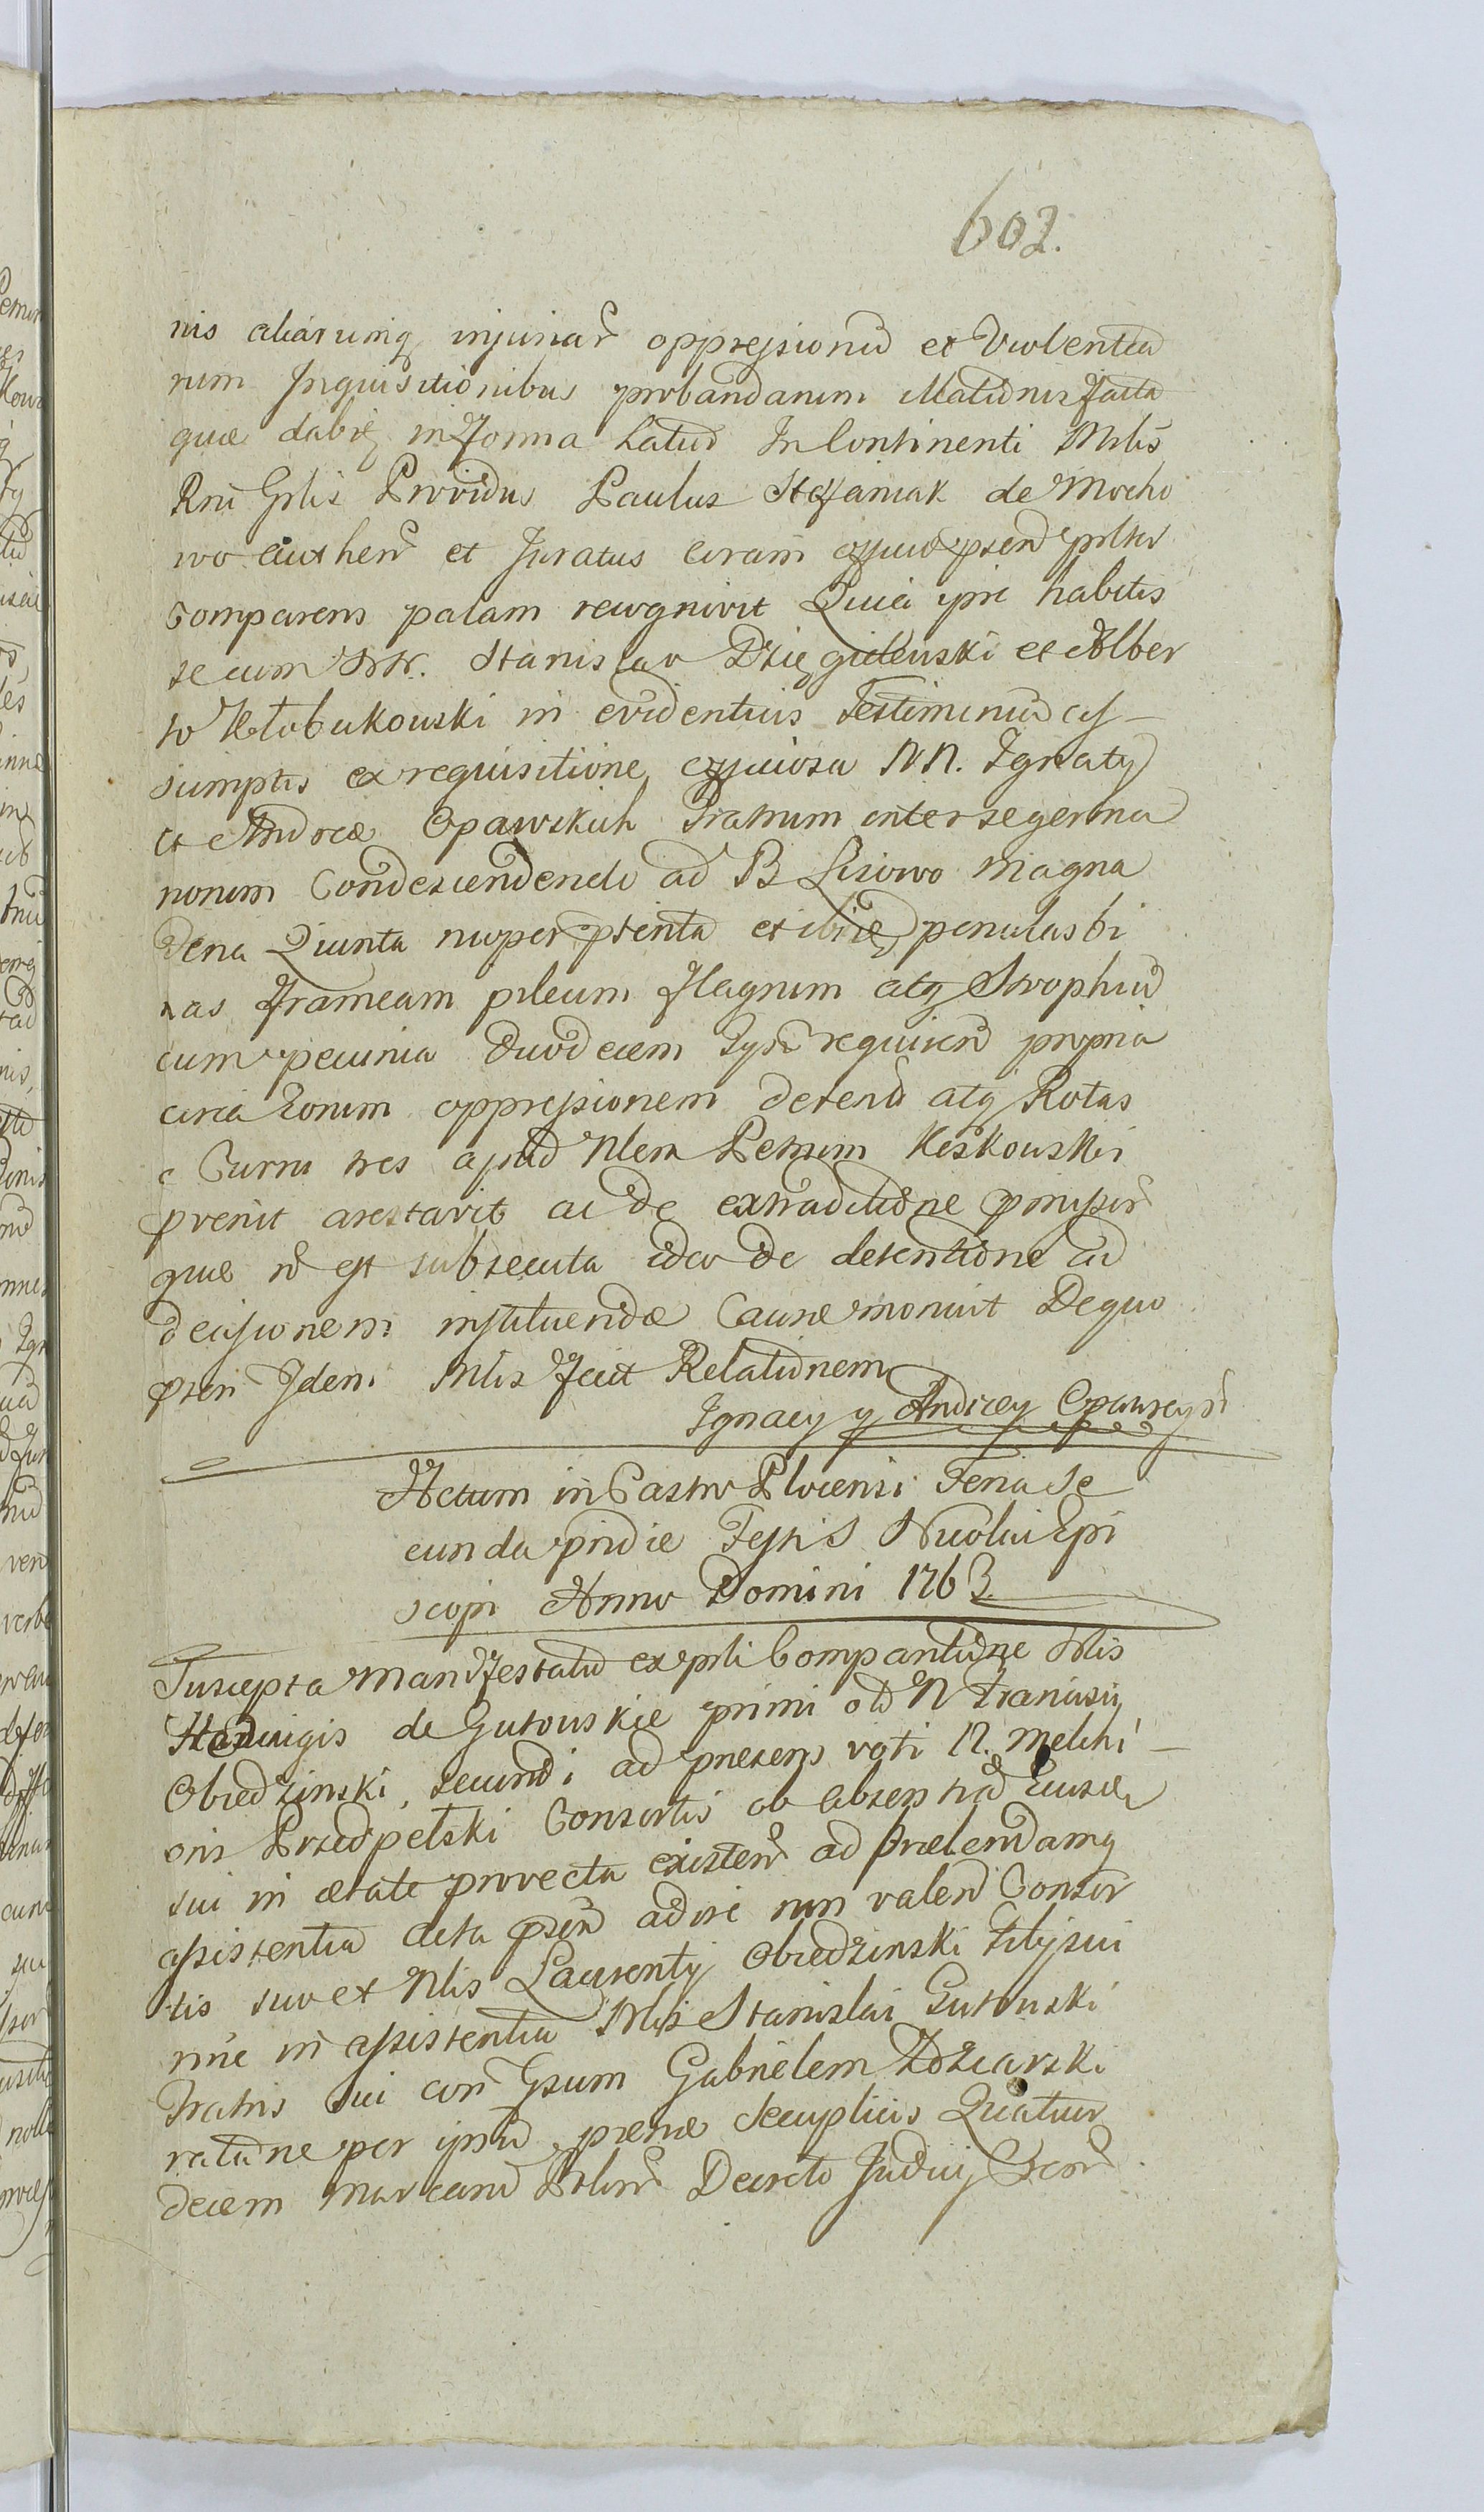 602.
nis aliarumq injuriar oppressionũ et Violentia
rum Inquisitionibus probandarum Mationis facta
quæ dabit in forma Latiũ In Continenti Mrlis
Rni Grlis Providus Paulus Stefaniak de Mocho
wo authen et Juratus coram officio psen prlter
comparens palam recognivit Quia ipse habitis
secum NN. Stanislao Dzięgielewski et Alber
to Kłobukowski in evidentius Testimoniũ as-
sumptis ex requisitione officiosa NN. Ignatij
et Andreæ Opawskich Fratrum inter se germa
norum Condescendendo ad B Lisowo magna
Dena Quinta nuper pterita et ibiq penulas bi
nas frameam pileum flagrum atq Strophiũ
cum pecunia duodecem Tyn requiren propria
circa Eorum oppressionem deten atq Rotas
e Curru tres apud Nlem Petrum Keskowski
prenit arestavit ac de extraditione
quæ ñ est subsecuta ideo de detentione ad
decisionem instituendæ Causæ monuit De quo
psen Idem Mlis fecit Relationem
Ignacy y Andrzey Opawscy
Actum in Castro Plocensi Feria Se
cunda pridie Festi S Nicolai Epi
scopi Anno Domini 1763.
Suscepta Manifestatio ex prli Comparitione Nlis
Hedwigis de Gutowskie primi olĩ N Francisci
Obiedzinski, secundi ad præsens voti N. Melchi-
oris Przedpełski Consortis ob absentiã
sui in ætate provecta existen ad Prætendamq
assistentia acta psen adire non valen Consor
tis suo et Nlis Laurentij Obiedzinski Filij sui
nñe in assistentia Nlis Stanislai Gutowski
Fratris sui con Gsum Gabrielem Zdziarski
ratione per ipsũ pænæ Seuplicis Quatuor
decem Marcarũ Polon Decreto Judicij